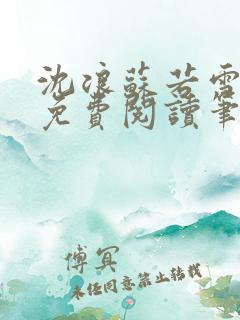 沈浪蘇若雪
免費閱讀筆
傅冥
未經同意禁止轉載